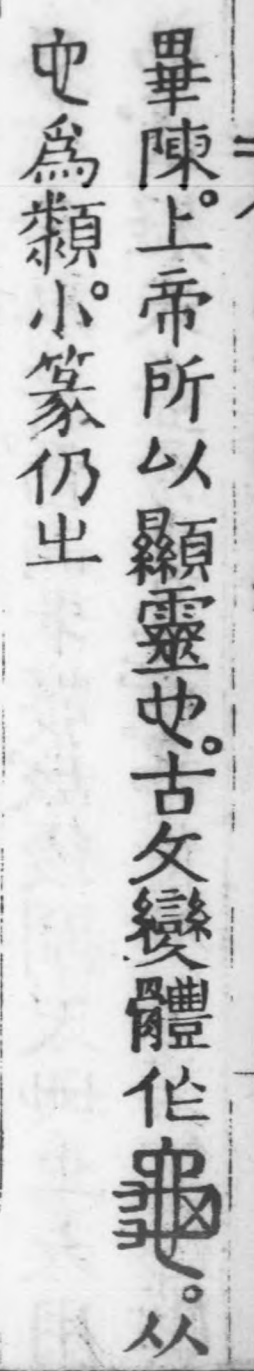 畢陳。上帝所以顯靈也。古文變體作龜。从
也爲類。小篆仍㞢